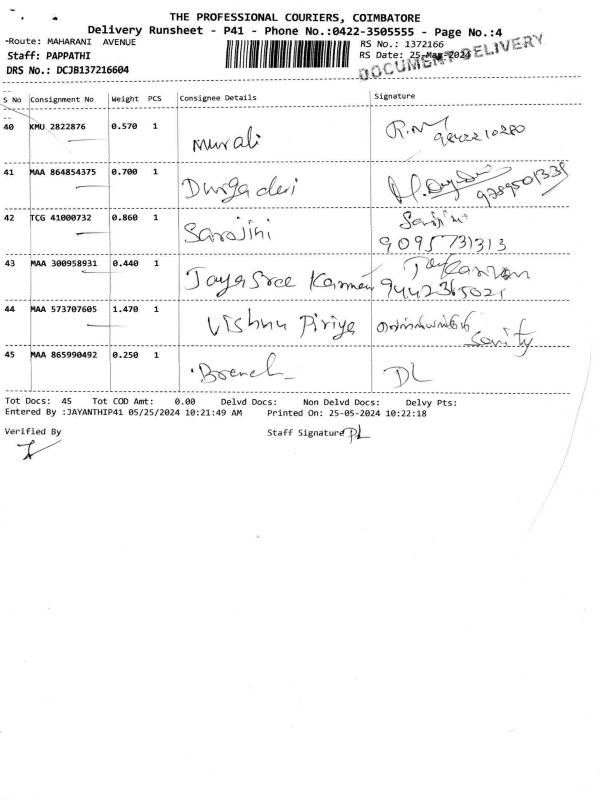 THE PROFESSIONAL COURIERS, COIMBATORE
Delivery Runsheet - P41 - Phone No.:0422-3505555 - Page No.:4
Route: MAHARANI AVENUE RS No.: 1372166
Staff: PAPPATHI RS Date: 25-May-2024
DOCUMENT DELIVERY
DRS No.: DCJB137216604
S No Consignment No Weight PCS Consignee Details Signature
40 KMU 2822876 0.570 1 Murali 9842210280
41 MAA 864854375 0.700 1 Durga devi 9789501339
42 TCG 41000732 0.860 1 Sarojini 9095731313
43 MAA 300958931 0.440 1 Jaya Sree Kannan 9442365021
44 MAA 573707605 1.470 1 Vishnu Piriya
45 MAA 865990492 0.250 1 Branch DL
Tot Docs: 45 Tot COD Amt: 0.00 Delvd Docs: Non Delvd Docs: Delvy Pts:
Entered By :JAYANTHIP41 05/25/2024 10:21:49 AM Printed On: 25-05-2024 10:22:18
Verified By Staff Signature PL